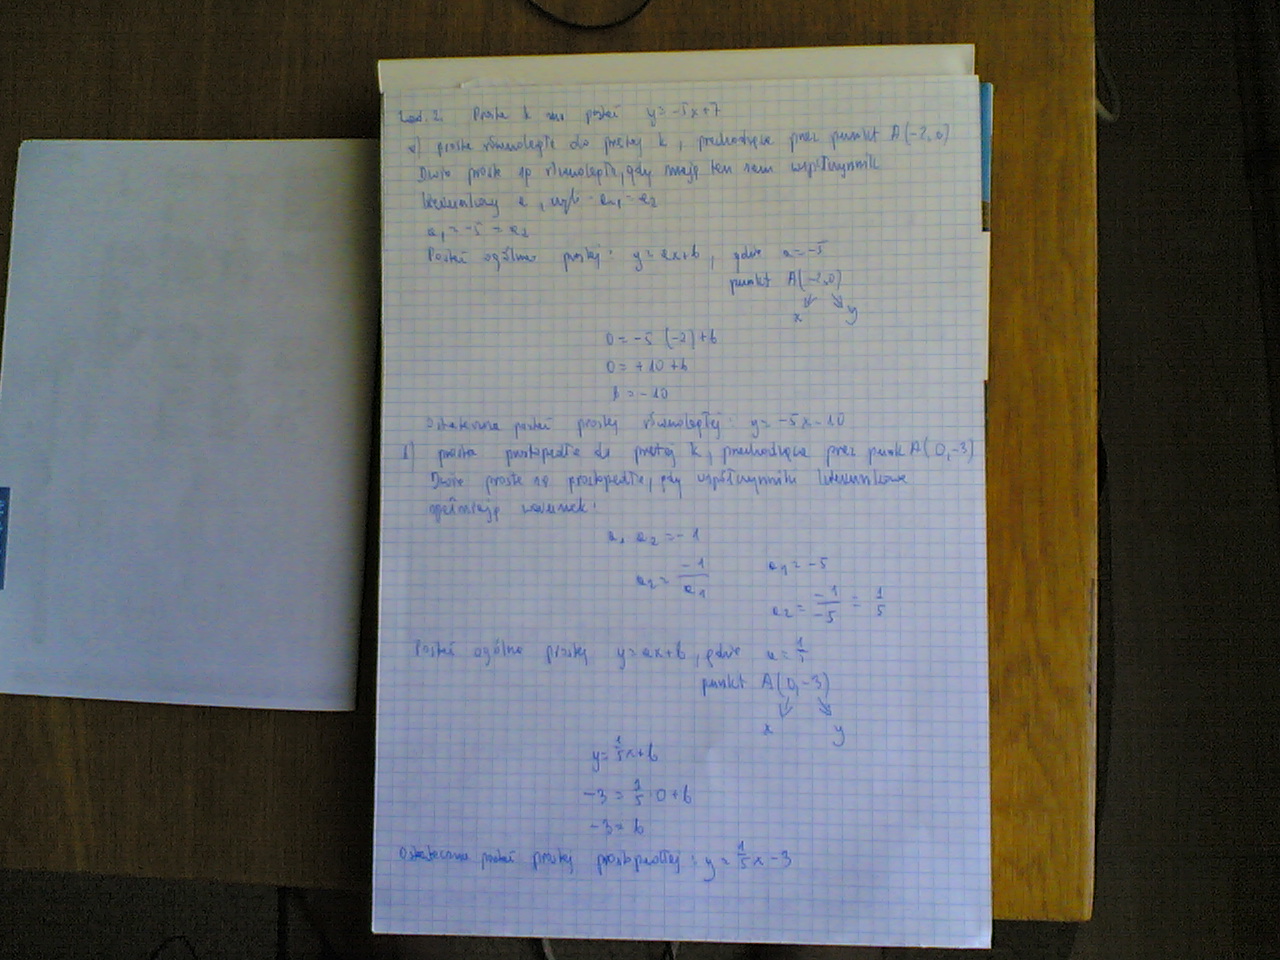 Zad. 2. Prosta k ma postać y = -5x+7
a) prosta równoległa do prostej k, przechodząca przez punkt A(-2,0)
Dwie proste są równoległe, gdy mają ten sam współczynnik
kierunkowy a, czyli a₁ = a₂
a₁ = -5 = a₂
Postać ogólna prostej: y = ax+b, gdzie a = -5
punkt A(-2,0)
x y
0 = -5 (-2)+b
0 = +10+b
b = -10
Ostateczna postać prostej równoległej: y = -5x-10
b) prosta prostopadła do prostej k, przechodząca przez punk A(0,-3)
Dwie proste są prostopadłe, gdy współczynniki kierunkowe
spełniają warunek:
a₁ a₂ = -1
a₂ = -1/a₁ a₁ = -5
a₂ = -1/-5 = 1/5
Postać ogólna prostej y = ax+b, gdzie a = 1/5
punkt A(0,-3)
x y
y = 1/5x+b
-3 = 1/5·0+b
-3 = b
Ostateczna postać prostej prostopadłej: y = 1/5x-3